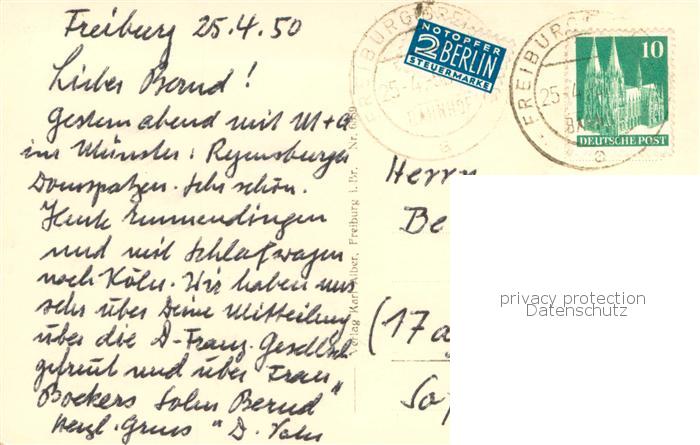 Freiburg 25.4.50
Lieber Bernd!
Gestern abend mit M+G
im Münster: Regensburger
Domspatzen. Sehr schön.
Heute Emmendingen
und mit Schlafwagen
nach Köln. Wir haben uns
sehr über Deine Mitteilung
über die D-Franz. Gesellsch.
gefreut und über "Frau
Boekers Sohn Bernd"
Herzl. Gruss D. Vater
Verlag Karl Alber, Freiburg i. Br. Nr.
NOTOPFER
2 BERLIN
STEUERMARKE
FREIBURG
25-4
BAHNHOF
a
FREIBURG
25-4
a
10
DEUTSCHE POST
Herrn
Be
(17a
privacy protection
Datenschutz